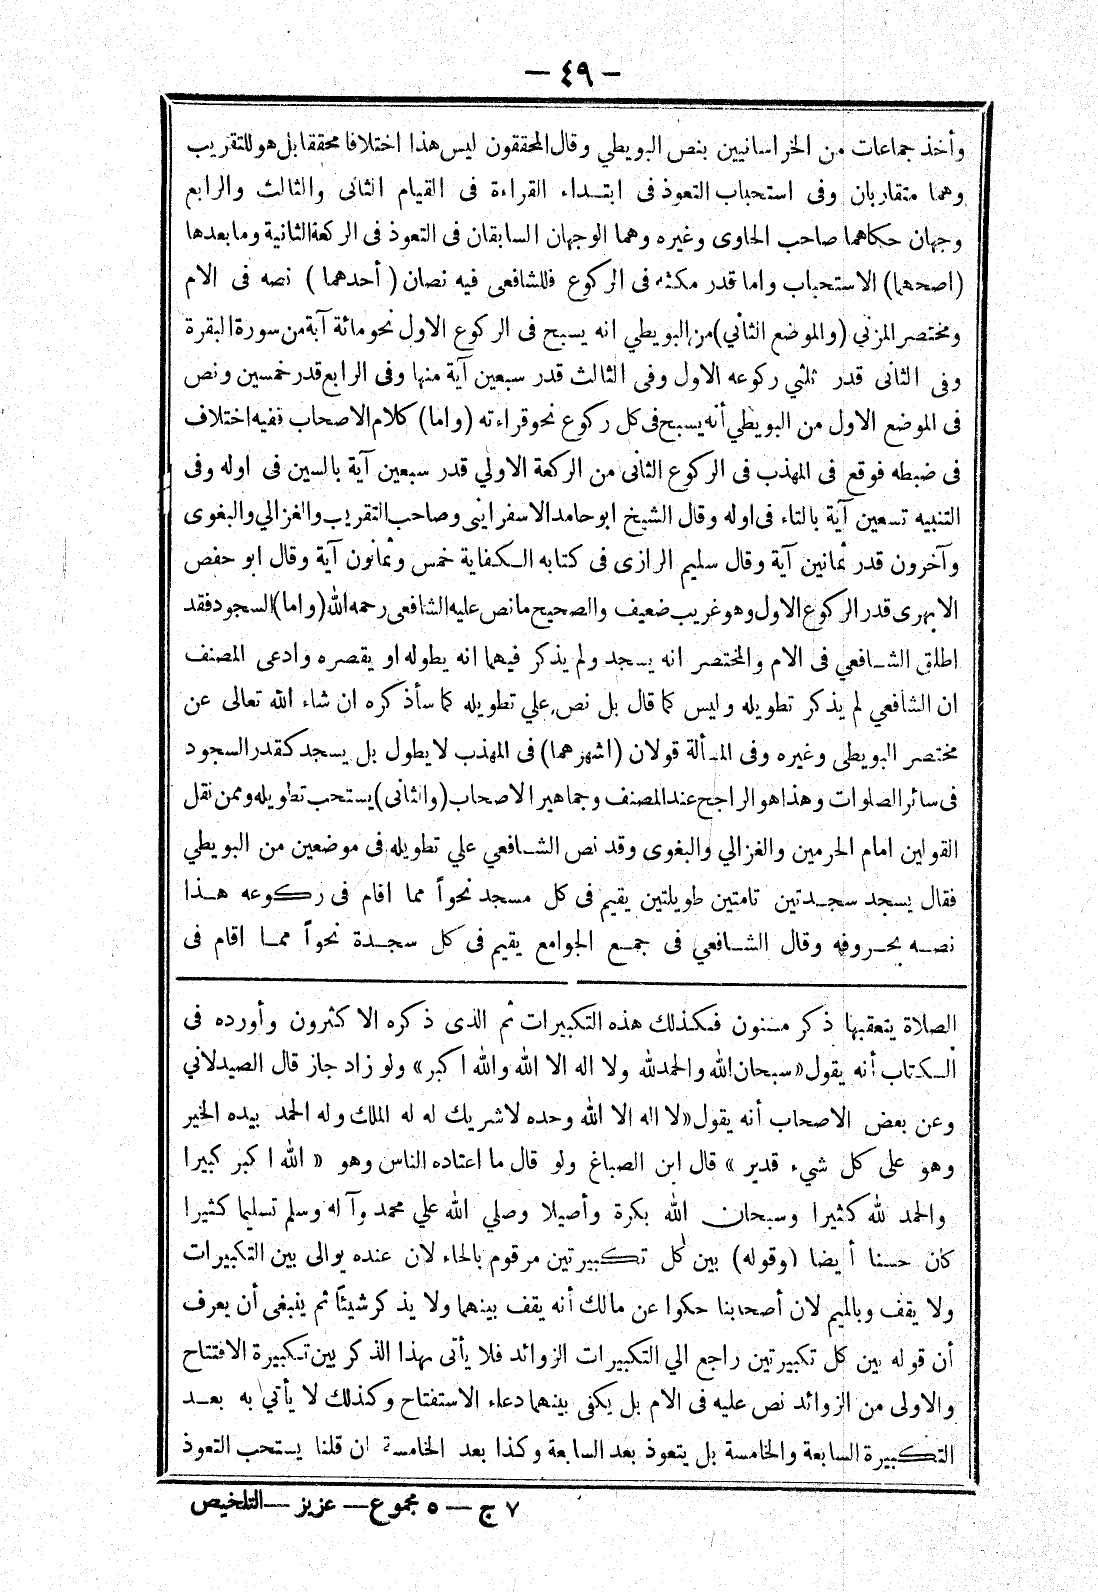 — ٤٩ —
وأخذ جماعات من الخراسانيين بنص البويطي وقال المحققون ليس هذا اختلافا محققا بل هو للتقريب
وهما متقاربان وفى استحباب التعوذ فى ابتداء القراءة فى القيام الثانى والثالث والرابع
وجهان حكاهما صاحب الحاوى وغيره وهما الوجهان السابقان فى التعوذ فى الركعة الثانية وما بعدها
(اصحهما) الاستحباب واما قدر مكثه فى الركوع فللشافعى فيه نصان (أحدهما) نصه فى الام
ومختصر المزني (والموضع الثاني) من البويطي انه يسبح فى الركوع الاول نحو مائة آية من سورة البقرة
وفى الثانى قدر ثلثي ركوعه الاول وفى الثالث قدر سبعين آية منها وفى الرابع قدر خمسين ونص
فى الموضع الاول من البويطي أنه يسبح فى كل ركوع نحو قراءته (واما) كلام الاصحاب ففيه اختلاف
فى ضبطه فوقع فى المهذب فى الركوع الثانى من الركعة الاولي قدر سبعين آية بالسين فى اوله وفى
التنبيه تسعين آية بالتاء فى اوله وقال الشيخ ابو حامد الاسفراينى وصاحب التقريب والغزالي والبغوى
وآخرون قدر ثمانين آية وقال سليم الرازى فى كتابه الكفاية خمس وثمانون آية وقال ابو حفص
الابهرى قدر الركوع الاول وهو غريب ضعيف والصحيح ما نص عليه الشافعى رحمه الله (واما) السجود فقد
اطلق الشافعي فى الام والمختصر انه يسجد ولم يذكر فيهما انه يطوله او يقصره وادعى المصنف
ان الشافعي لم يذكر تطويله وليس كما قال بل نص علي تطويله كما سأذكره ان شاء الله تعالى عن
مختصر البويطى وغيره وفى المسألة قولان (اشهرهما) فى المهذب لا يطول بل يسجد كقدر السجود
فى سائر الصلوات وهذا هو الراجح عند المصنف وجماهير الاصحاب (والثانى) يستحب تطويله وممن نقل
القولين امام الحرمين والغزالي والبغوى وقد نص الشافعي علي تطويله فى موضعين من البويطي
فقال يسجد سجدتين تامتين طويلتين يقيم فى كل مسجد نحواً مما اقام فى ركوعه هذا
نصه بحروفه وقال الشافعي فى جمع الجوامع يقيم فى كل سجدة نحواً مما اقام فى
الصلاة يتعقبها ذكر مسنون فكذلك هذه التكبيرات ثم الذى ذكره الاكثرون وأورده فى
الكتاب أنه يقول «سبحان الله والحمد لله ولا اله الا الله والله اكبر» ولو زاد جاز قال الصيدلاني
وعن بعض الاصحاب أنه يقول «لا اله الا الله وحده لا شريك له له الملك وله الحمد بيده الخير
وهو على كل شيء قدير» قال ابن الصباغ ولو قال ما اعتاده الناس وهو « الله اكبر كبيرا
والحمد لله كثيرا وسبحان الله بكرة وأصيلا وصلي الله علي محمد وآله وسلم تسليما كثيرا
كان حسنا أيضا (وقوله) بين كل تكبيرتين مرقوم بالحاء لان عنده يوالى بين التكبيرات
ولا يقف وبالميم لان أصحابنا حكوا عن مالك أنه يقف بينهما ولا يذكر شيئاً ثم ينبغى أن يعرف
أن قوله بين كل تكبيرتين راجع الي التكبيرات الزوائد فلا يأتى بهذا الذكر بين تكبيرة الافتتاح
والاولى من الزوائد نص عليه فى الام بل يكفى بينهما دعاء الاستفتاح وكذلك لا يأتي به بعد
التكبيرة السابعة والخامسة بل يتعوذ بعد السابعة وكذا بعد الخامسة ان قلنا يستحب التعوذ
٧ ج — ٥ مجموع — عزيز — التلخيص